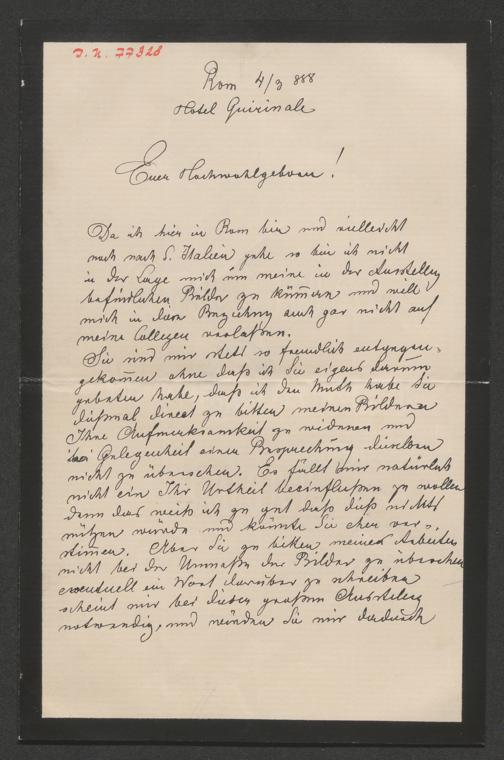 I. N. 77328
Rom 4/3 888
Hotel Quirinale
Euer Hochwohlgeboren!
Da ich hier in Rom bin und vielleicht
noch nach S. Italien gehe so bin ich nicht
in der Lage mich um meine in der Ausstellung
befindlichen Bilder zu kümmern und will
mich in dieser Beziehung auch gar nicht auf
meine Collegen verlaßen.
Sie sind mir stets so freundlich entgegen-
gekommen ohne daß ich Sie eigens darum
gebeten habe, daß ich den Muth habe Sie
dießmal direct zu bitten meinen Bildern
Ihre Aufmerksamkeit zu widmen und
bei Gelegenheit einer Besprechung dieselben
nicht zu übersehen. Es fällt mir natürlich
nicht ein Ihr Urtheil beeinflußen zu wollen
denn das weiß ich zu gut daß dieß nichts
nützen würde und könnte Sie eher ver-
stimmen. Aber Sie zu bitten meine Arbeiten
nicht bei der Unmaße der Bilder zu übersehen
eventuell ein Wort darüber zu schreiben
scheint mir bei dieser großen Ausstellung
notwendig, und würden Sie mir dadurch